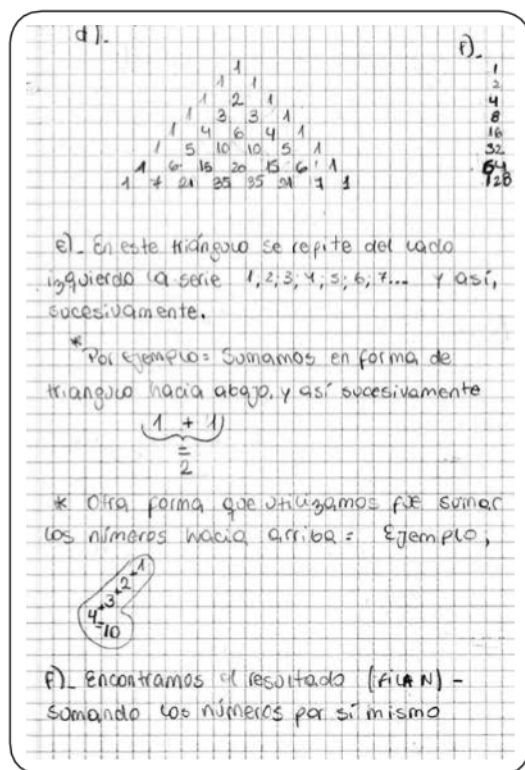 d).
f)_
1
1 1
1 2 1
1 3 3 1
1 4 6 4 1
1 5 10 10 5 1
1 6 15 20 15 6 1
1 7 21 35 35 21 7 1
1
2
4
8
16
32
64
128
e)_ En este triángulo se repite del lado
izquierdo la serie 1, 2; 3, 4; 5; 6; 7... y así,
sucesivamente.
* Por ejemplo: Sumamos en forma de
triangulo hacia abajo, y así sucesivamente
1 + 1
=
2
* Otra forma que utilizamos fue sumar
los números hacia arriba = Ejemplo;
4+3+2+1
=10
f)_ Encontramos el resultado (FILA N) -
sumando los números por sí mismo